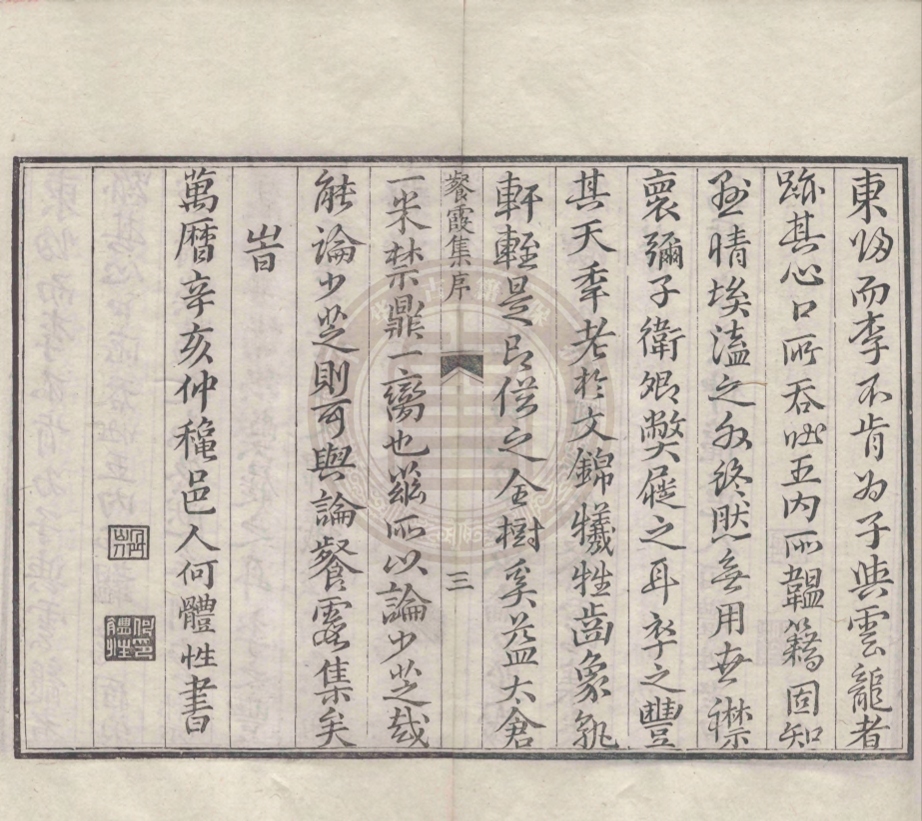 東歸而李不肯為子與雲龍者
跡其心口所吞吐五内所韞籍固知
埃溘之外終然無用世襟
褱彌子衛卿獘屣之耳卒之豐
其天秊老於文錦犧牲齒象孰
軒輊是即之全樹奚益太倉
餐霞集序
三
一米禁鼎一臠也茲所以論少芝哉
能論少芝則可與論餐霞集矣
旹
萬曆辛亥仲穐邑人何體性書
何印體性